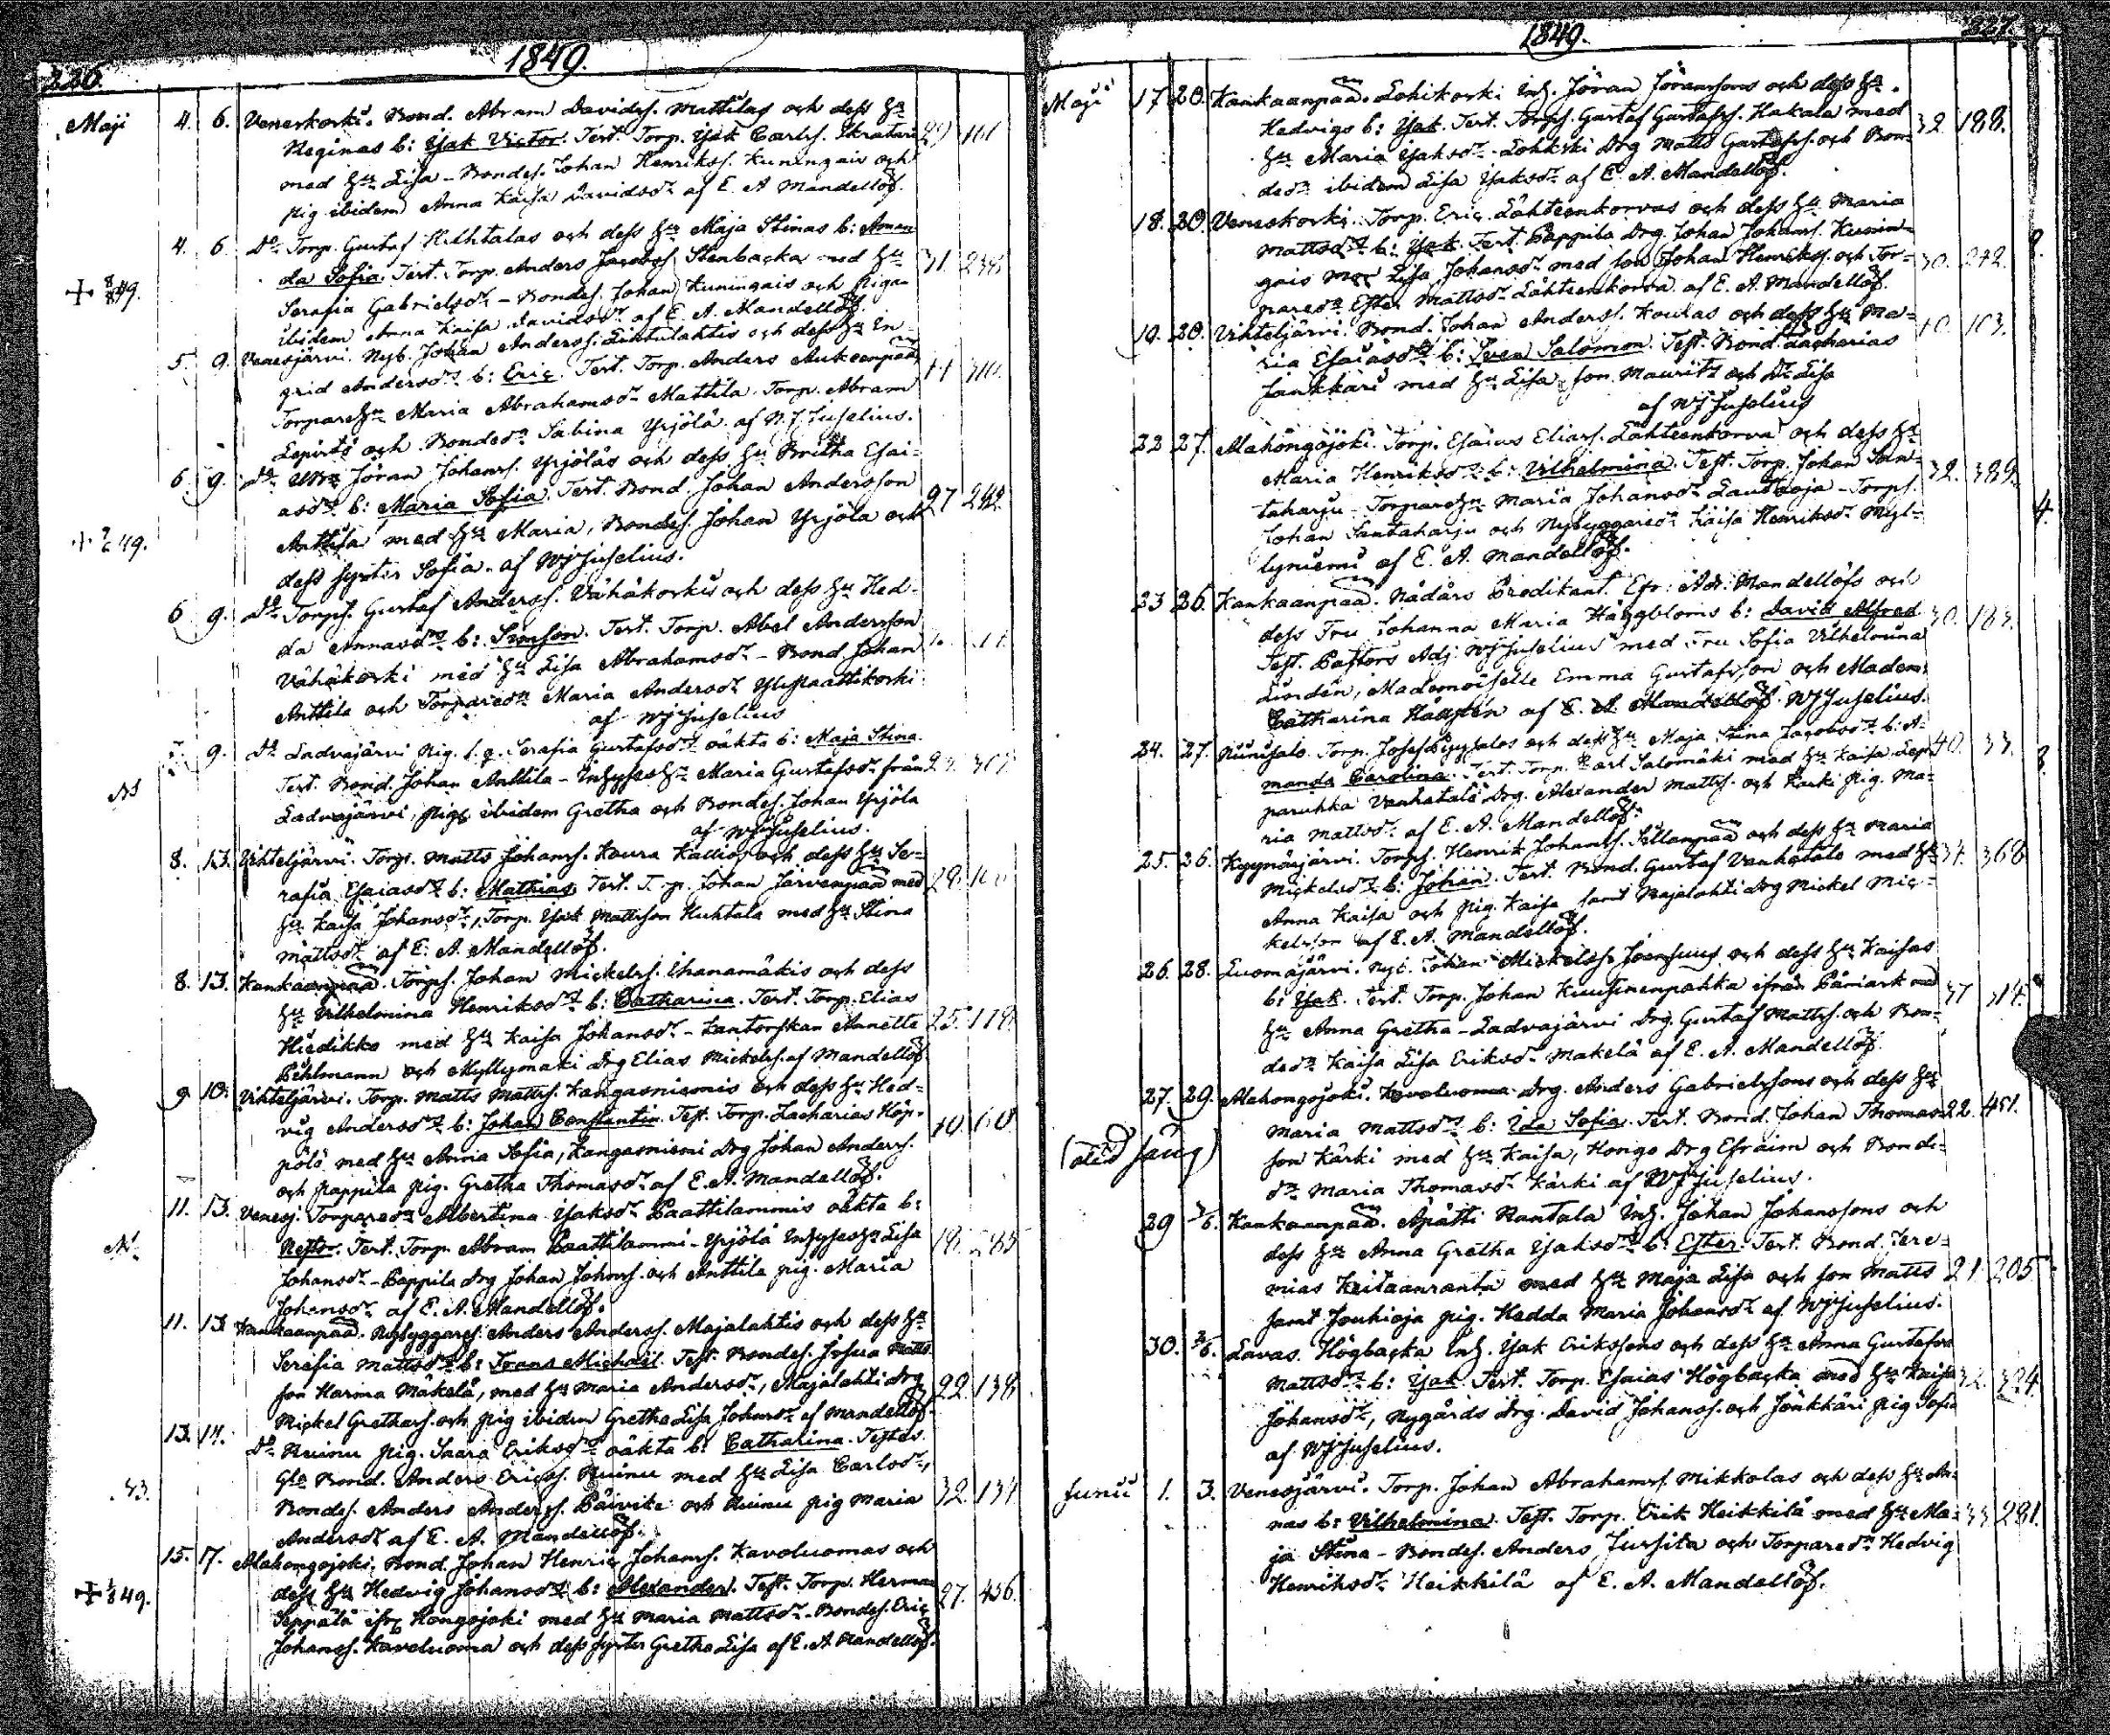 226.
1849.
Maji 4. 6. Veneskoski. Bond. Abram Davidss. Mattilas och dess Hu
Reginas b: Isak Victor. Test. Torp. Isak Carlss. Skratari 29
med Hu Lisa - Bondes. Johan Henrikss. Kuningais och
pig. ibidem Anna Kaisa Davidsdr af E. A. Mandellöf.
4. 6. Do Torp. Gustaf Huhtalas och dess Hu Maja Stinas b: Aman-
+ 8/8 49. da Sofia. Test. Torp. Anders Jacobss. Stenbacka med Hu 31. 238
Serafia Gabrielsdr - Bondes. Johan Kuningais och piga
ibidem Anna Kaisa Davidsdr af E. A. Mandellöf.
5. 9. Venesjärvi. Nyb. Johan Anderss. Luhtalahtis och dess Hu In-
grid Andersdrs b: Eric. Test. Torp. Anders Aukeenpää,
Torpare Hu Maria Abrahamsdr Mattila. Torp. Abram
Lepistö och Bondedr Sabina Yrjölä. af W J Juselius.
6. 9. Do Jöran Johanss. Yrjöläs och dess Hu Britha Esai-
asdrs b: Maria Sofia. Test. Bond. Johan Andersson 27 242.
+ 49. Anttila med Hu Maria, Bondes. Johan Yrjölä och
dess syster Sofia. af WJJuselius.
6 9. Do Torps. Gustaf Anderss. Vähäkoskis och dess Hu Hed-
da Annasdrs b: Simson. Test. Torp. Abel Andersson
Vähäkoski med Hu Lisa Abrahamsdr - Bond Johan
Anttila och Torparedr Maria Andersdr Ylipaattikoski
af WJJuselius
9. Do Ladvajärvi pig. Serafia Gustafsdrs oäkta b: Maja Stina.
Test. Bond. Johan Anttila - Inhyses Hu Maria Gustafsdr från
Ladvajärvi, pig. ibidem Gretha och Bondes. Johan Yrjölä
af WJJuselius.
8. 13. Vihteljärvi. Torp. Matts Johanss. Koura Kallios och dess Hu Se-
rafia Esaiasdrs b: Mathias. Test. Torp. Johan Järvenpää med 28.
Hu Kaisa Johansdr, Torp. Isak Mattsson Huhtala med Hu Stina
Mattsdr af E. A. Mandellöf.
8. 13. Kankaanpää. Torps. Johan Mickelss. Ihanamäkis och dess
Hu Vilhelmina Henriksdrs b: Catharina. Test. Torp. Elias
Hiedikko med Hu Kaisa Johansdr - Kantorskan Annette 25. 118.
Pehlmann och Myllymäki Drg Elias Mickelss. af Mandellöf
9. 10. Vihteljärvi. Torp. Matts Mattss. Kangasniemis och dess Hu Hed-
vig Andersdrs b: Johan Constantin. Test. Torp. Zacharias Höp-
pölö med Hu Anna Sofia, Kangasniemi Drg Johan Anderss.
och Pappila pig. Gretha Thomasdr af E. A. Mandellöf.
11. 13. Venesj. Torparedr Albertina Isaksdr Paattilammis oäkta b:
Nestor. Test. Torp. Abram Paattilammi - Yrjölä Inhyses Hu Lisa
Johansdr - Pappila drg Johan Johanss. och Anttila pig. Maria
Johansdr af E. A. Mandellöf.
11. 13. Kankaanpää. Nybyggares. Anders Anderss. Majalahtis och dess Hu
Serafia Mattsdrs b: Frans Michaël. Test. Bondes. Josua Matts-
son Harma Mäkelä, med Hu Maria Andersdr, Majalahti drg 22. 138
Mickel Grethass. och pig ibidem Gretha Lisa Johansdr af Mandellöf.
13. 14. Do Ruinu pig. Saara Eriksdrs oäkta b: Catharina. Testes.
Gla Bond. Anders Ericss. Ruinu med Hu Lisa Carlsdr,
Bondes. Anders Anderss. Päivike och Ruinu pig Maria 32. 134
Andersdr af E. A. Mandellöf.
15. 17. Alahongojoki. Bond. Johan Henric Johanss. Kavoluomas och
dess Hu Hedvig Johansdrs b: Alexander. Test. Torp. Herman 27. 456
+ 49. Seppälä ifr. Hongojoki med Hu Maria Mattsdr - Bondes. Eric
Johanss. Kavoluoma och dess syster Gretha Lisa af E. A. Mandellöf.
1849. 227.
Maji 17 20. Kankaanpää. Lohikoski Inh. Jöran Jöranssons och dess Hu
Hedvigs b: Isak. Test. Torps. Gustaf Gustafss. Hakala med 32. 188.
Hu Maria Isaksdr - Lohikoski Drg Matts Gustafss. och Bon-
dedr ibidem Lisa Isaksdr af E. A. Mandellöf.
18. 20. Veneskoski. Torp. Eric Lähteenkorvas och dess Hu Maria
Mattsdrs b: Isak. Test. Pappila Drg. Johan Johanss. Kunin-
gais Mor Lisa Johansdr med son Johan Henrikss. och Tor- 30. 242.
paredr Ester Mattsdr Lähteenkorva af E. A. Mandellöf.
19. 20. Vihteljärvi. Bond. Johan Anderss. Koulas och dess Hu Ma-
ria Esaiasdrs b: Sven Salomon. Test. Bond. Zacharias 10. 103.
Jankkari med Hu Lisa, son Mauritz och dr Lisa
af WJJuselius
22 27. Alahongojoki. Torp. Esaias Eliass. Lähteenkorva och dess Hu
Maria Henriksdrs b: Vilhelmina. Test. Torp. Johan San-
taharju - Torpare Hu Maria Johansdr Lauttoja - Torps. 32. 389.
Johan Santaharju och Nybyggaredr Kaisa Henriksdr Myl-
lyniemi af E. A. Mandellöf.
23 26. Kankaanpää. Nådårs Predikant. Efr. Adr. Mandellöfs och
dess Fru Johanna Maria Häggbloms b: David Alfred. 30. 183.
Test. Pastors Adj. WJJuselius med Fru Sofia Vilhelmina
Lundén, Mademoiselle Emma Gustafsson och Madem.
Catharina Häggsten af E. A. Mandellöf. WJJuselius.
24. 27. Niinisalo. Torp. Josef Syysalos och dess Hu Maja Stina Jacobsdrs b: A-
manda Carolina. Test. Torp. Karl Salomäki med Hu Kaisa Lep 40. 33.
parukka Vanhatalo Drg. Alexander Mattss. och Karki pig. Ma-
ria Mattsdr af E. A. Mandellöf.
25. 26. Kyynärjärvi. Torps. Henrik Johanss. Sillanpää och dess Hu Maria
Mickelsdrs b: Johan. Test. Bond. Gustaf Vanhatalo med Hu 34. 368
Anna Kaisa och pig. Kaisa samt Majalahti Drg Mickel Mic-
kelsson af E. A. Mandellöf.
26. 28. Luomajärvi. Nyb. Johan Mickelss. Joensuus och dess Hu Kaisas
b: Isak. Test. Torp. Johan Kuusinenpakka ifrån Påmark med
Hu Anna Gretha - Ladvajärvi Drg. Gustaf Mattss. och Bon- 37 314.
dedr Kaisa Lisa Eriksdr Mäkelä af E. A. Mandellöf.
27. 29. Alahongojoki. Kavoluoma Drg. Anders Gabrielssons och dess Hu
Maria Mattsdrs b: Ida Sofia. Test. Bond. Johan Thomas- 22. 451.
son Kärki med Hu Kaisa, Hongo Drg Efraim och Bonde-
dr Maria Thomasdr Kärki af WJJuselius.
29 3/6. Kankaanpää. Apätti Rantala Inh. Johan Johanssons och
dess Hu Anna Gretha Isaksdrs b: Ester. Test. Bond. Jere-
mias Keitaanranta med Hu Maja Lisa och son Matts 21. 205.
samt Jouhioja pig. Hedda Maria Johansdr af WJJuselius.
30. 3/6. Lavas. Högbacka Inh. Isak Erikssons och dess Hu Anna Gustafva
Mattsdrs b: Isak. Test. Torp. Esaias Högbacka med Hu Kaisa 32. 324.
Johansdr, Nygårds Drg. David Johanss. och Jönkkäri pig Sofia
af WJJuselius.
Junii 1. 3. Venesjärvi. Torp. Johan Abrahamss. Mikkolas och dess Hu An-
nas b: Vilhelmina. Test. Torp. Erik Heikkilä med Hu Ma- 33 281.
ja Stina - Bondes. Anders Jussila och Torparedr Hedvig
Henriksdr Heikkilä af E. A. Mandellöf.